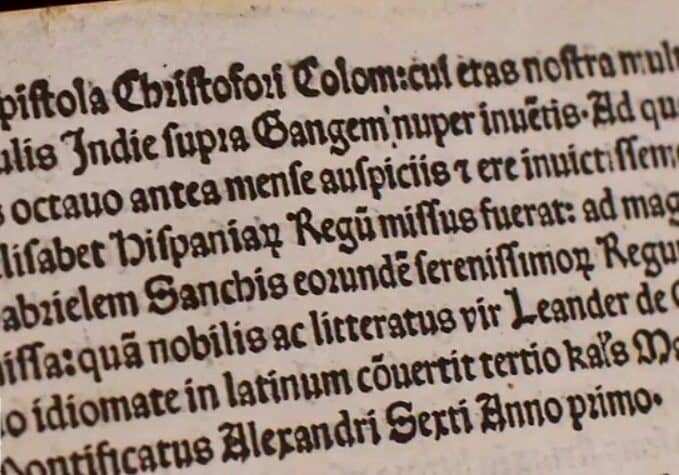 pistola Chriſtofori Colom:cui etas noſtra mul
ulis Indie ſupra Gangem nuper inuẽtis. Ad qu
s octauo antea menſe auſpiciis ⁊ ere inuictiſſem
liſabet Hiſpaniaꝝ Regũ miſſus fuerat: ad mag
abrielem Sanchis eorundẽ ſereniſſimoꝝ Regu
iſſa: quã nobilis ac litteratus vir Leander de
o idiomate in latinum cõuertit tertio kal's Ma
pontificatus Alexandri Sexti Anno primo.